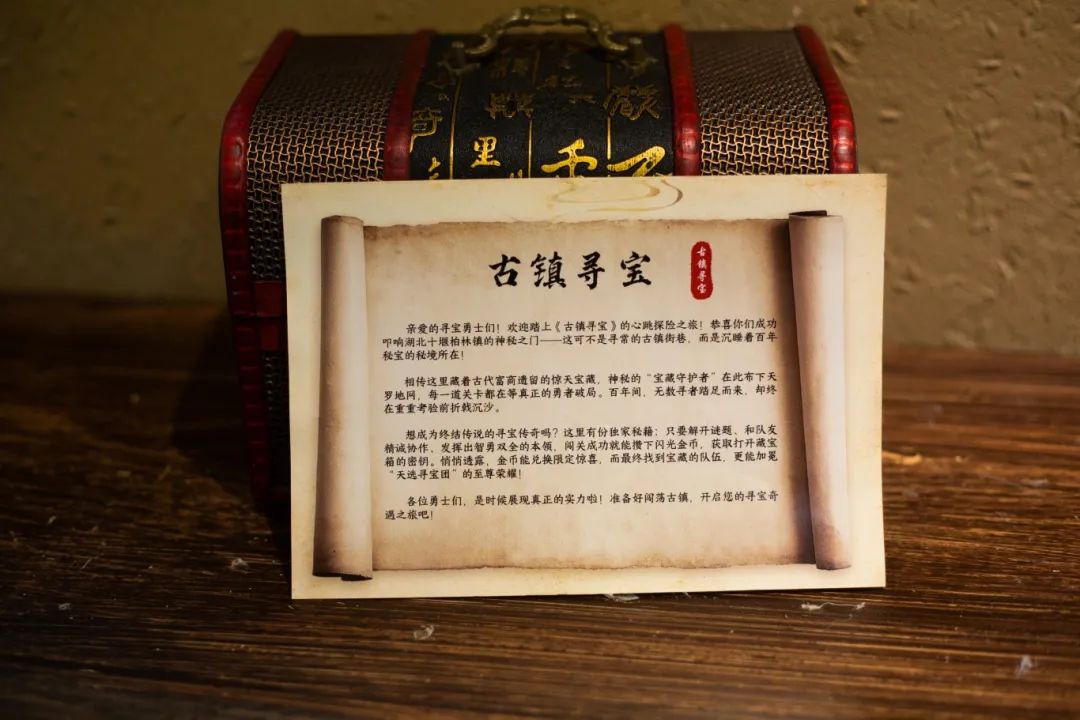 里
古镇寻宝
古镇寻宝
亲爱的寻宝勇士们！欢迎踏上《古镇寻宝》的心跳探险之旅！恭喜你们成功
叩响湖北十堰柏林镇的神秘之门——这可不是寻常的古镇街巷，而是沉睡着百年
秘宝的秘境所在！
相传这里藏着古代富商遗留的惊天宝藏，神秘的“宝藏守护者”在此布下天
罗地网，每一道关卡都在等真正的勇者破局。百年间，无数寻者踏足而来，却终
在重重考验前折戟沉沙。
想成为终结传说的寻宝传奇吗？这里有份独家秘籍：只要解开谜题、和队友
精诚协作、发挥出智勇双全的本领，闯关成功就能攒下闪光金币，获取打开藏宝
箱的密钥。悄悄透露，金币能兑换限定惊喜，而最终找到宝藏的队伍，更能加冕
“天选寻宝团”的至尊荣耀！
各位勇士们，是时候展现真正的实力啦！准备好闯荡古镇，开启您的寻宝奇
遇之旅吧！